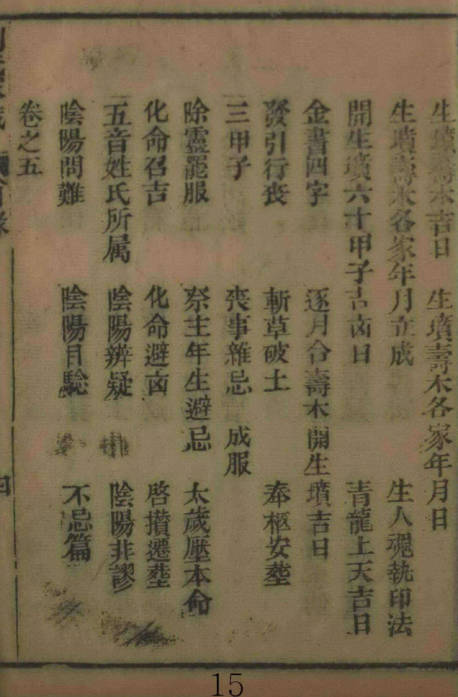 生墳壽木吉日 生墳壽木各家年月日
生墳壽木各家年月立成 生人魂執印法
開生墳六十甲子吉凶日 青龍上天吉日
金書四字 逐月合壽木開生墳吉日
發引行喪 斬草破土 奉柩安塟
三甲子 喪事雜忌 成服
除靈罷服 祭主年生避忌 太歲壓本命
化命召吉 化命避凶 啓攢遷塟
五音姓氏所属 陰陽辨疑 陰陽非謬
陰陽問難 陰陽目騐 不忌篇
卷之五
四
15